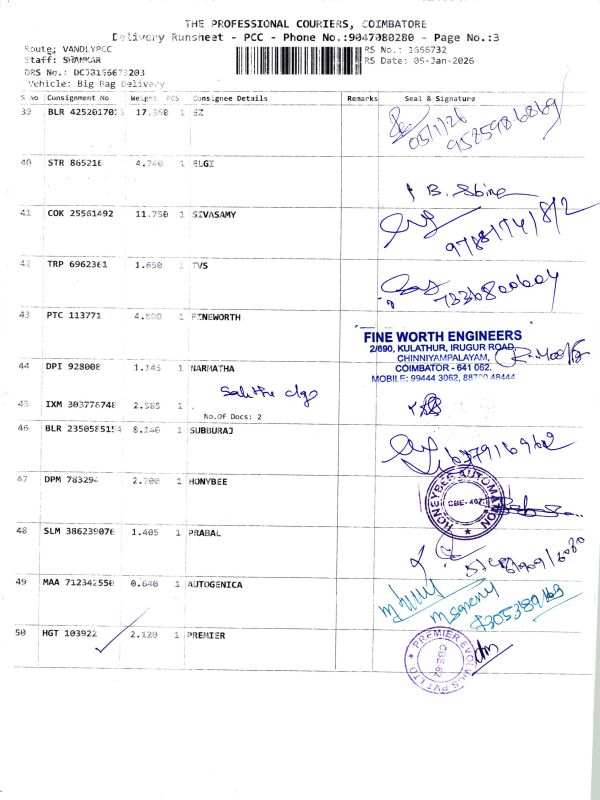 THE PROFESSIONAL COURIERS, COIMBATORE
Delivery Runsheet - PCC - Phone No.:9047080280 - Page No.:3
Route: VANDLYPCC RS No.: 1666732
Staff: SHANKAR RS Date: 05-Jan-2026
DRS No.:
Vehicle: Big Bag Delivery
S No Consignment No Weight PCS Consignee Details Remarks Seal & Signature
39 BLR 17.360 1 EZ
05/1/26
9525986869
40 STR 865216 4.740 1 ELGI
B.
41 COK 25561492 11.750 1 SIVASAMY
42 TRP 6962361 1.650 1 TVS
7336800604
43 PTC 113771 4.800 1 FINEWORTH
FINE WORTH ENGINEERS
2/690, KULATHUR, IRUGUR ROAD,
CHINNIYAMPALAYAM,
COIMBATOR - 641 062.
MOBILE: 99444 3062, 88700 48444
44 DPI 928008 1.145 1 NARMATHA
45 IXM 303776748 2.585 1 .
No.Of Docs: 2
46 BLR 2350585154 8.146 1 SUBBURAJ
47 DPM 783294 2.700 1 HONYBEE
HONEYBEE AUTOMATION
CBE-407
48 SLM 386239076 1.405 1 PRABAL
49 MAA 712342550 0.640 1 AUTOGENICA
50 HGT 103922 2.120 1 PREMIER
PREMIER EVOLVICS PVT LTD
CBE-62